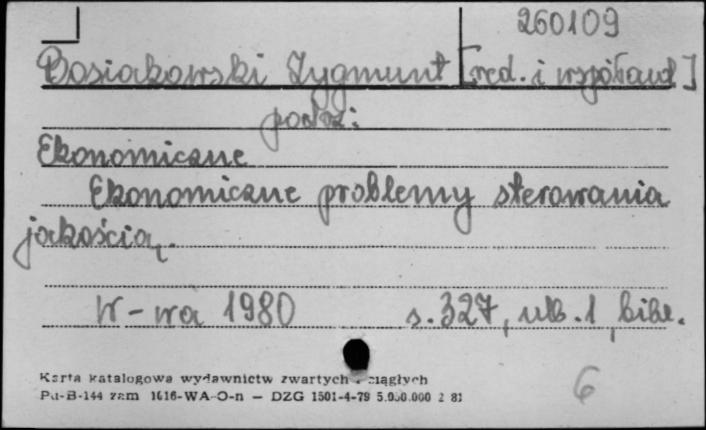 260109
Bosiakowski Zygmunt [red. i współaut]
patrz:
Ekonomiczne
Ekonomiczne problemy sterowania
jakością.
W-wa 1980 s. 327, nlb. 1, bibl.
Karta katalogowa wydawnictw zwartych i ciągłych
Pu-B-144 zam 1616-WA-O-n — DZG 1501-4-79 5.000.000 2 81
6